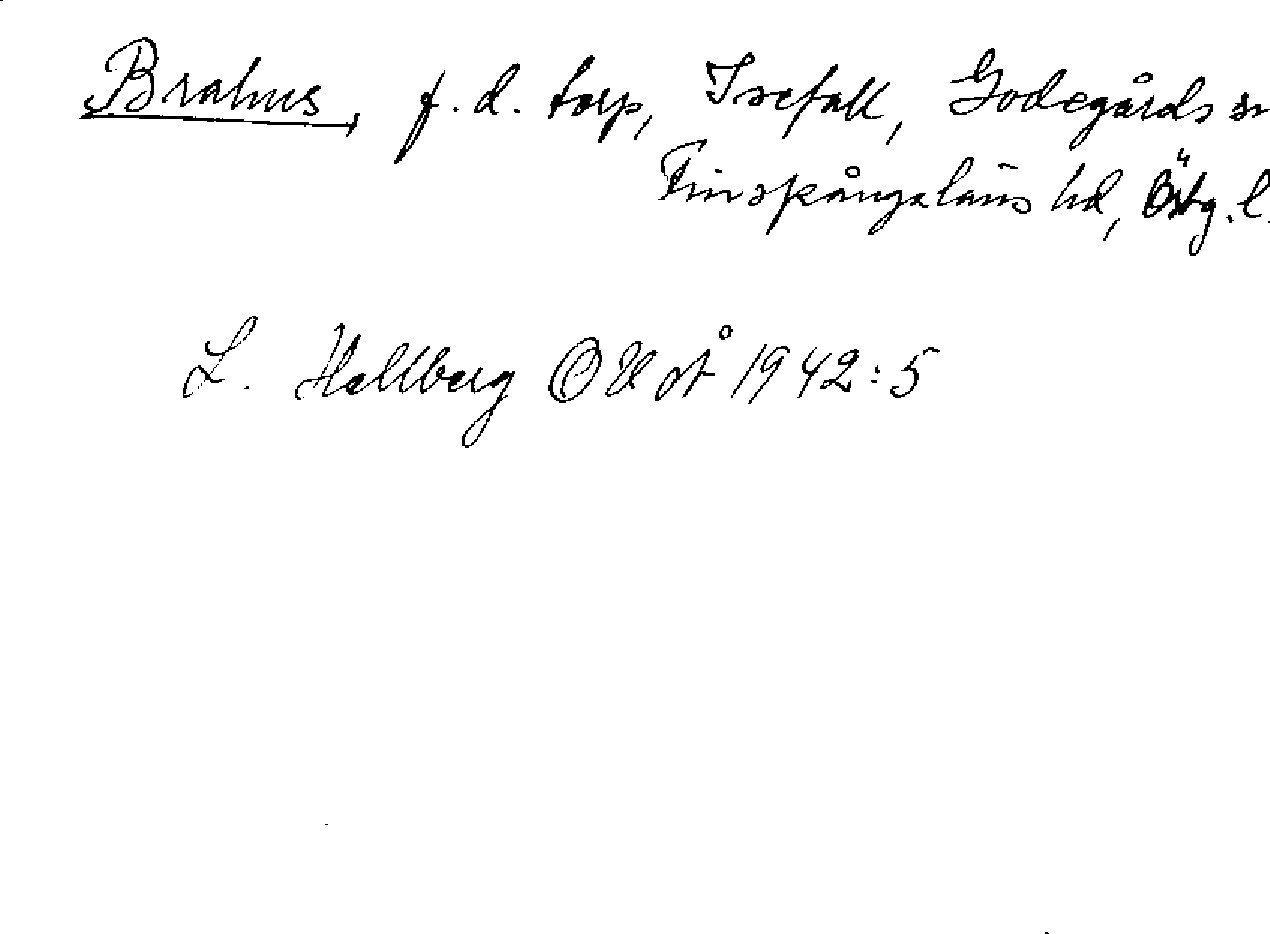 Brahus, f. d. torp, Isefall, Godegårds sn
Finspångaläns hd, Östg. l.
L. Hallberg 1942:5